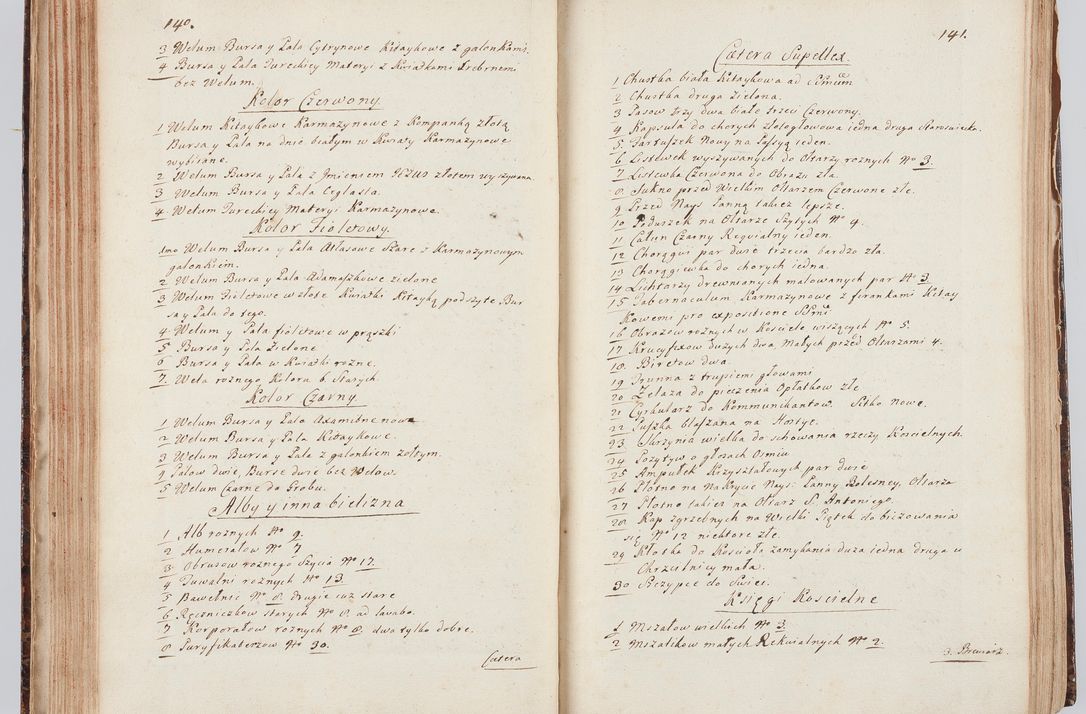 140.
3 Welum Bursa y Pala Cytrynowe Kitaykowe z galonkami.
4 Bursa y Pala Tureckiey Materyi z Kwiatkami Srebrnemi
bez Welum.
Kolor Czerwony.
1 Welum Kitaykowe Karmazynowe z Kompanką złotą
Bursa y Pala na dnie białym w Kwiaty Karmazynowe
wybiiane.
2 Welum Bursa y Pala z Jmieniem JEZUS złotem wyszywana.
3 Welum Bursa y Pala Ceglasta.
4 Welum Tureckiey Materyi Karmazynowe.
Kolor Fioletowy.
1mo Welum Bursa y Pala Atłasowe Szare z Karmazynowym
galonkiem.
2 Welum Bursa y Pala Adamaszkowe zielone
3 Welum Fioletowe w złote Kwiatki Kitayką podszyte Bur
sa y Pala do tego.
4 Welum y Pala fioletowe w prązki
5 Bursa y Pala Zielone
6 Bursa y Pala w Kwiatki rozne.
7. Wela roznego Koloru 6. Starych.
Kolor Czarny.
1 Welum Bursa y Pala Axamitne nowe
2 Welum Bursa y Pala Kitaykowe.
3 Welum Bursa y Pala z galonkiem zołtym.
4 Palow dwie, Burse dwie bez Welow.
5 Welum Czarne do Grobu.
Alby y inna bielizna
1 Alb roznych No 9.
2 Humerałow No 7
3 Obrusow roznego Szycia No 17.
4 Tuwalni roznych No 13.
5 Bawełnic No 8. drugie iuz stare
6 Ręczniczkow starych No 8. ad lavabo.
7 Korporałow roznych No 8. dwa tylko dobre.
8 Puryfikaterzow No 30.
Cætera
141.
Cætera Supellex.
1 Chustka biała Kitaykowa ad
2 Chustka druga zielona.
3 Pasow trzy dwa białe trzeci Czerwony.
4 Kapsuła do chorych złotogłowowa iedna druga staroswiecka.
5 Fartuszek Nowy na Passyą ieden.
6 Listewek wyszywanych do Ołtarzy roznych No 3.
7 Listewka Czerwona do Obrazu zła.
8 Sukno przed Wielkim Ołtarzem Czerwone złe.
9 Przed Nays Panną takiez lepsze.
10 Poduszek na Ołtarze Szytych No 4.
11 Całun Czarny Requialny ieden.
12 Chorągwi par dwie trzecia bardzo zła.
13 Chorągiewka do chorych iedna.
14 Lichtarzy drewnianych malowanych par No 3.
15 Tabernaculum Karmazynowe z firankami Kitay
kowemi pro expositione SSmi
16 Obrazow roznych w Kosciele wiszących No 5.
17 Krucyfixow duzych dwa Małych przed Ołtarzami 4.
18. Biretow dwa.
19 Trunna z trupiemi głowami
20 Zelaza do pieczenia Opłatkow złe
21 Cyrkularz do Kommunikantow. Sitko nowe.
22 Puszka blaszana na Hostye.
23. Skrzynia wielka do schowania rzeczy Koscielnych.
24 Pozytyw o głosach Osmiu
25 Ampułek Krzyształowych par dwie
26 Płotno na Nakrycie Nays: Panny Bolesney, Ołtarza
27 Płotno takiez na Ołtarz S. Antoniego.
28. Kap zgrzebnych na Wielki Piątek do biczowania
się No 12 niektore złe.
29 Kłotka do Kosciola zamykania duza iedna druga u
Chrzcielnicy mała.
30 Szczypce do Swiec.
Księgi Koscielne
1 Mszałow wielkich No 3.
2 Mszalikow małych Rekwialnych No 2
3. Brewiarz